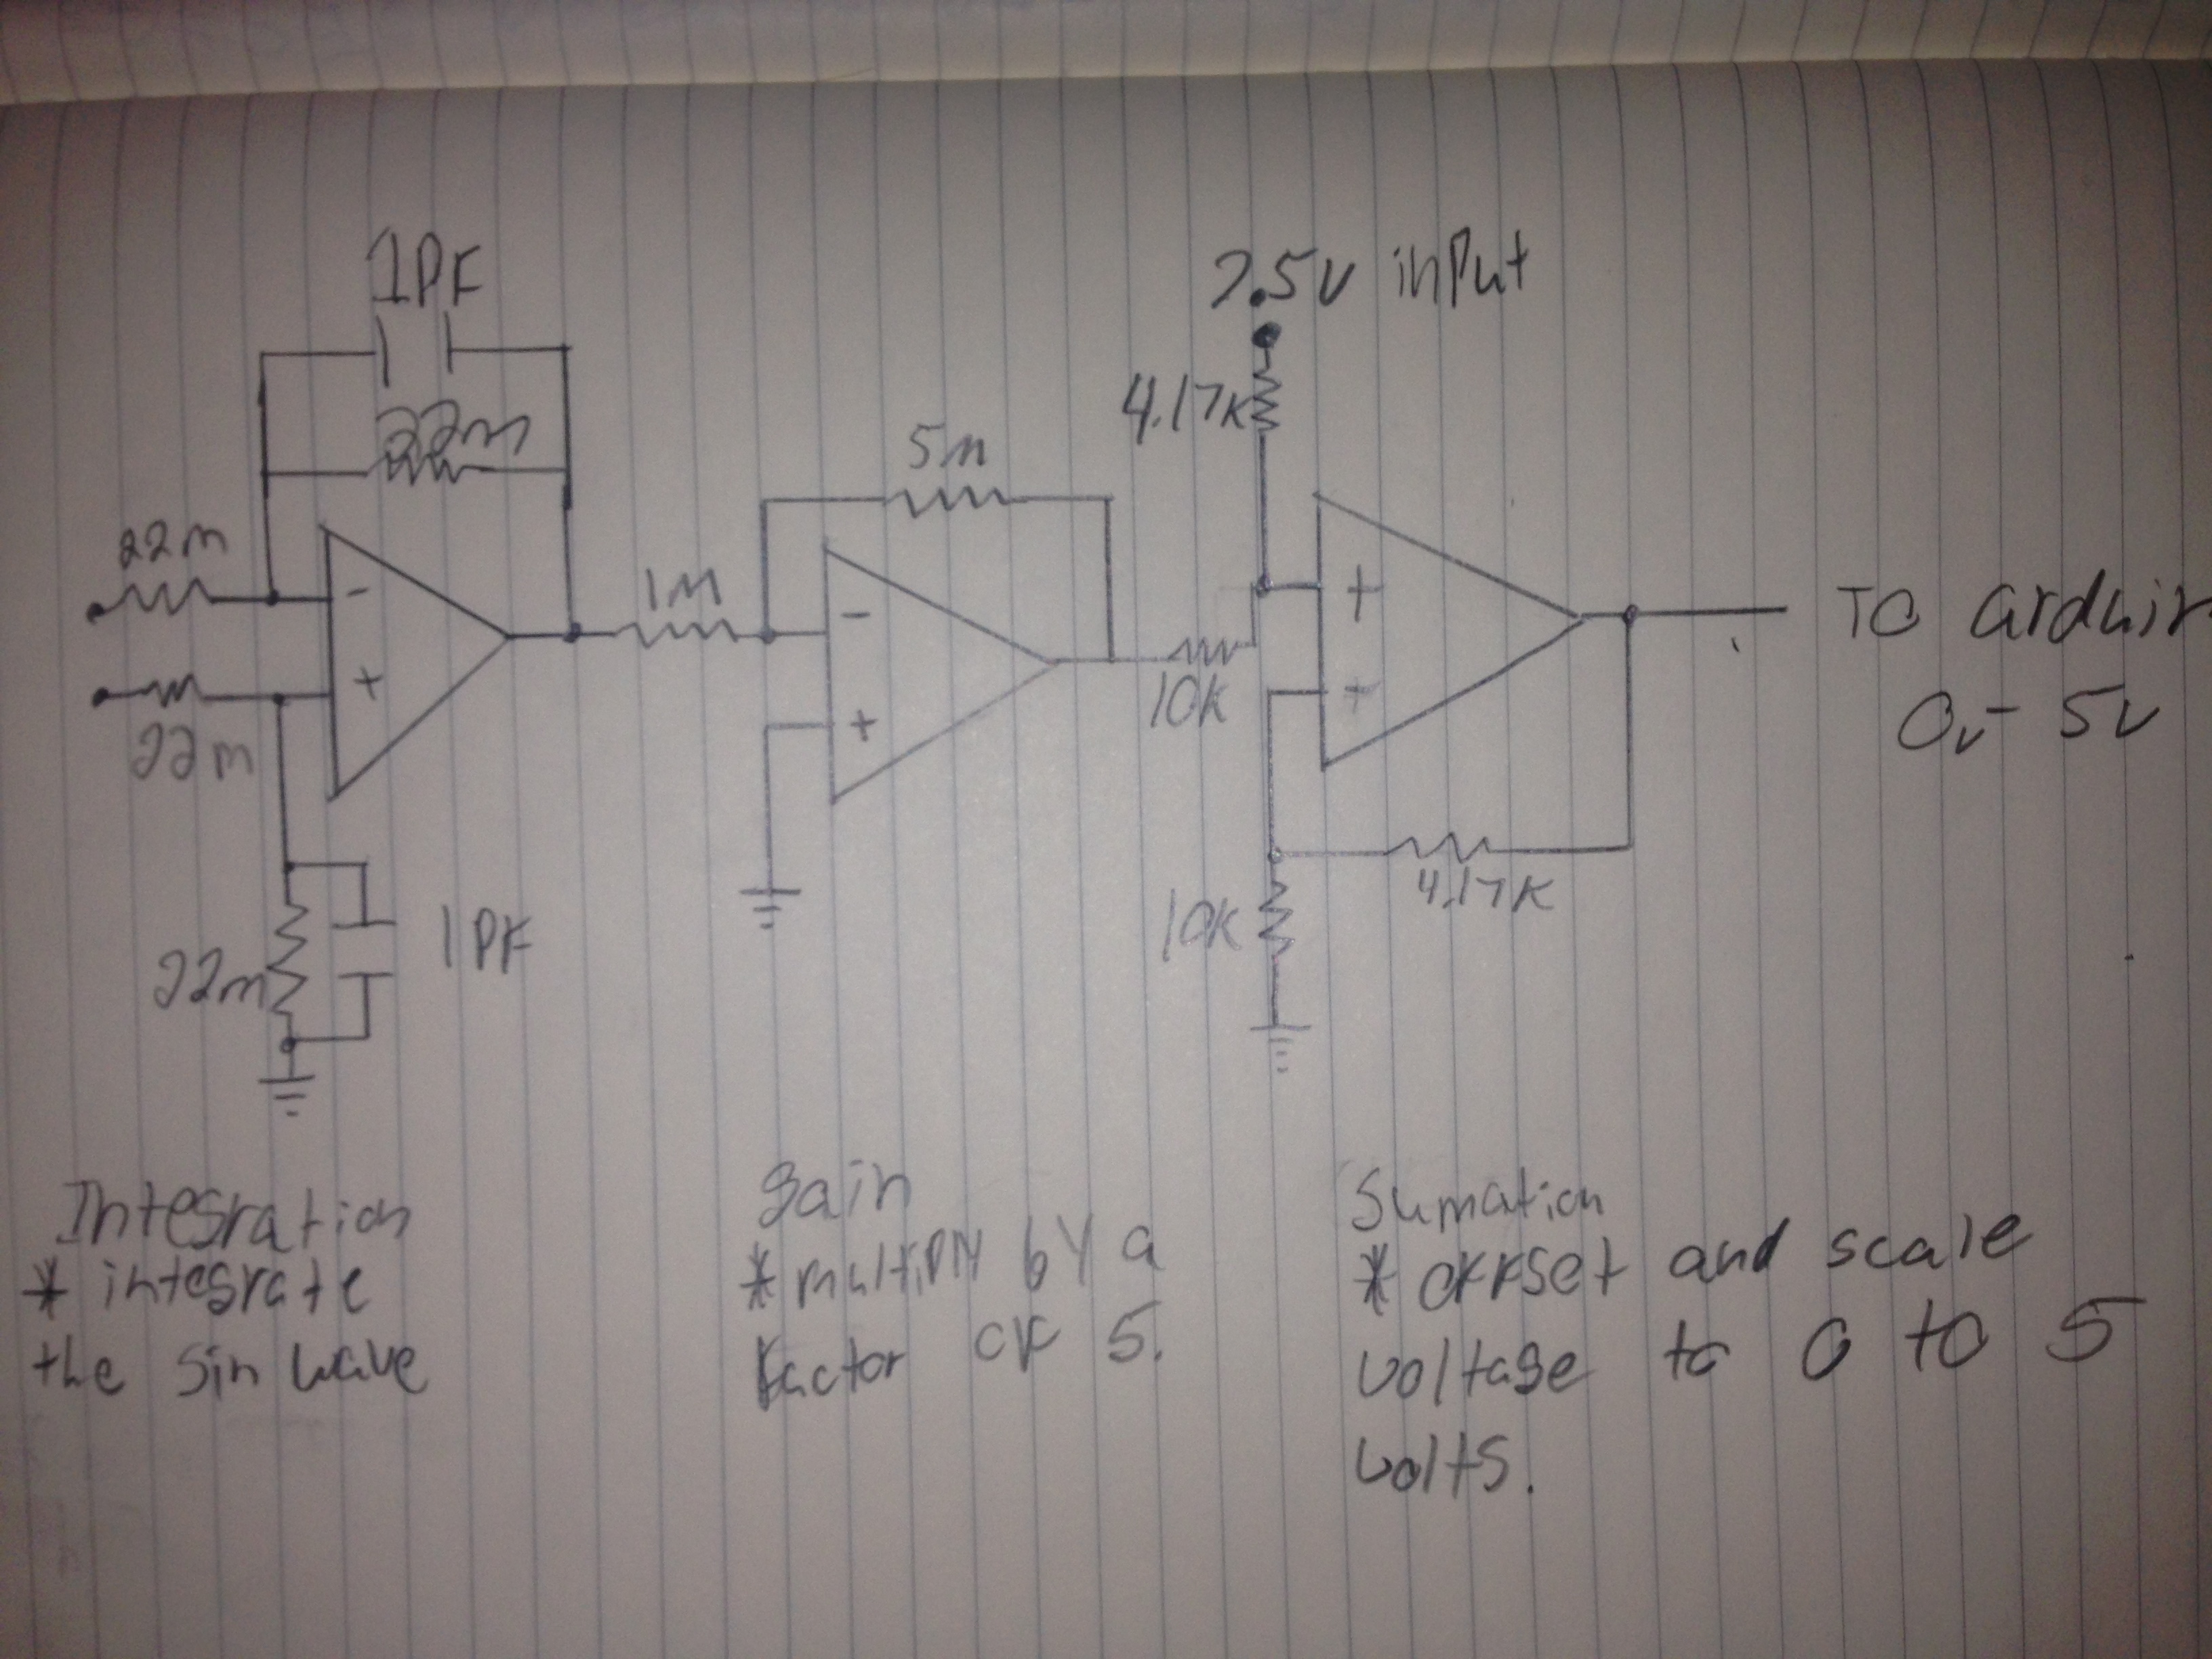 1PF
22m
22m
22m
22m
1PF
1M
5m
2.5v input
4.17K
10K
10K
4.17K
-
+
-
+
+
+
To arduin
0v- 5v
Integration
* integrate
the sin wave
gain
* multiply by a
factor of 5.
Sumation
* offset and scale
voltage to 0 to 5
volts.